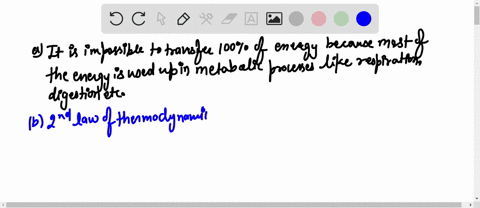 a) It is impossible to transfer 100% of energy because most of
the energy is used up in metabolic processes like respiration,
digestion etc.
(b) 2nd law of thermodynami